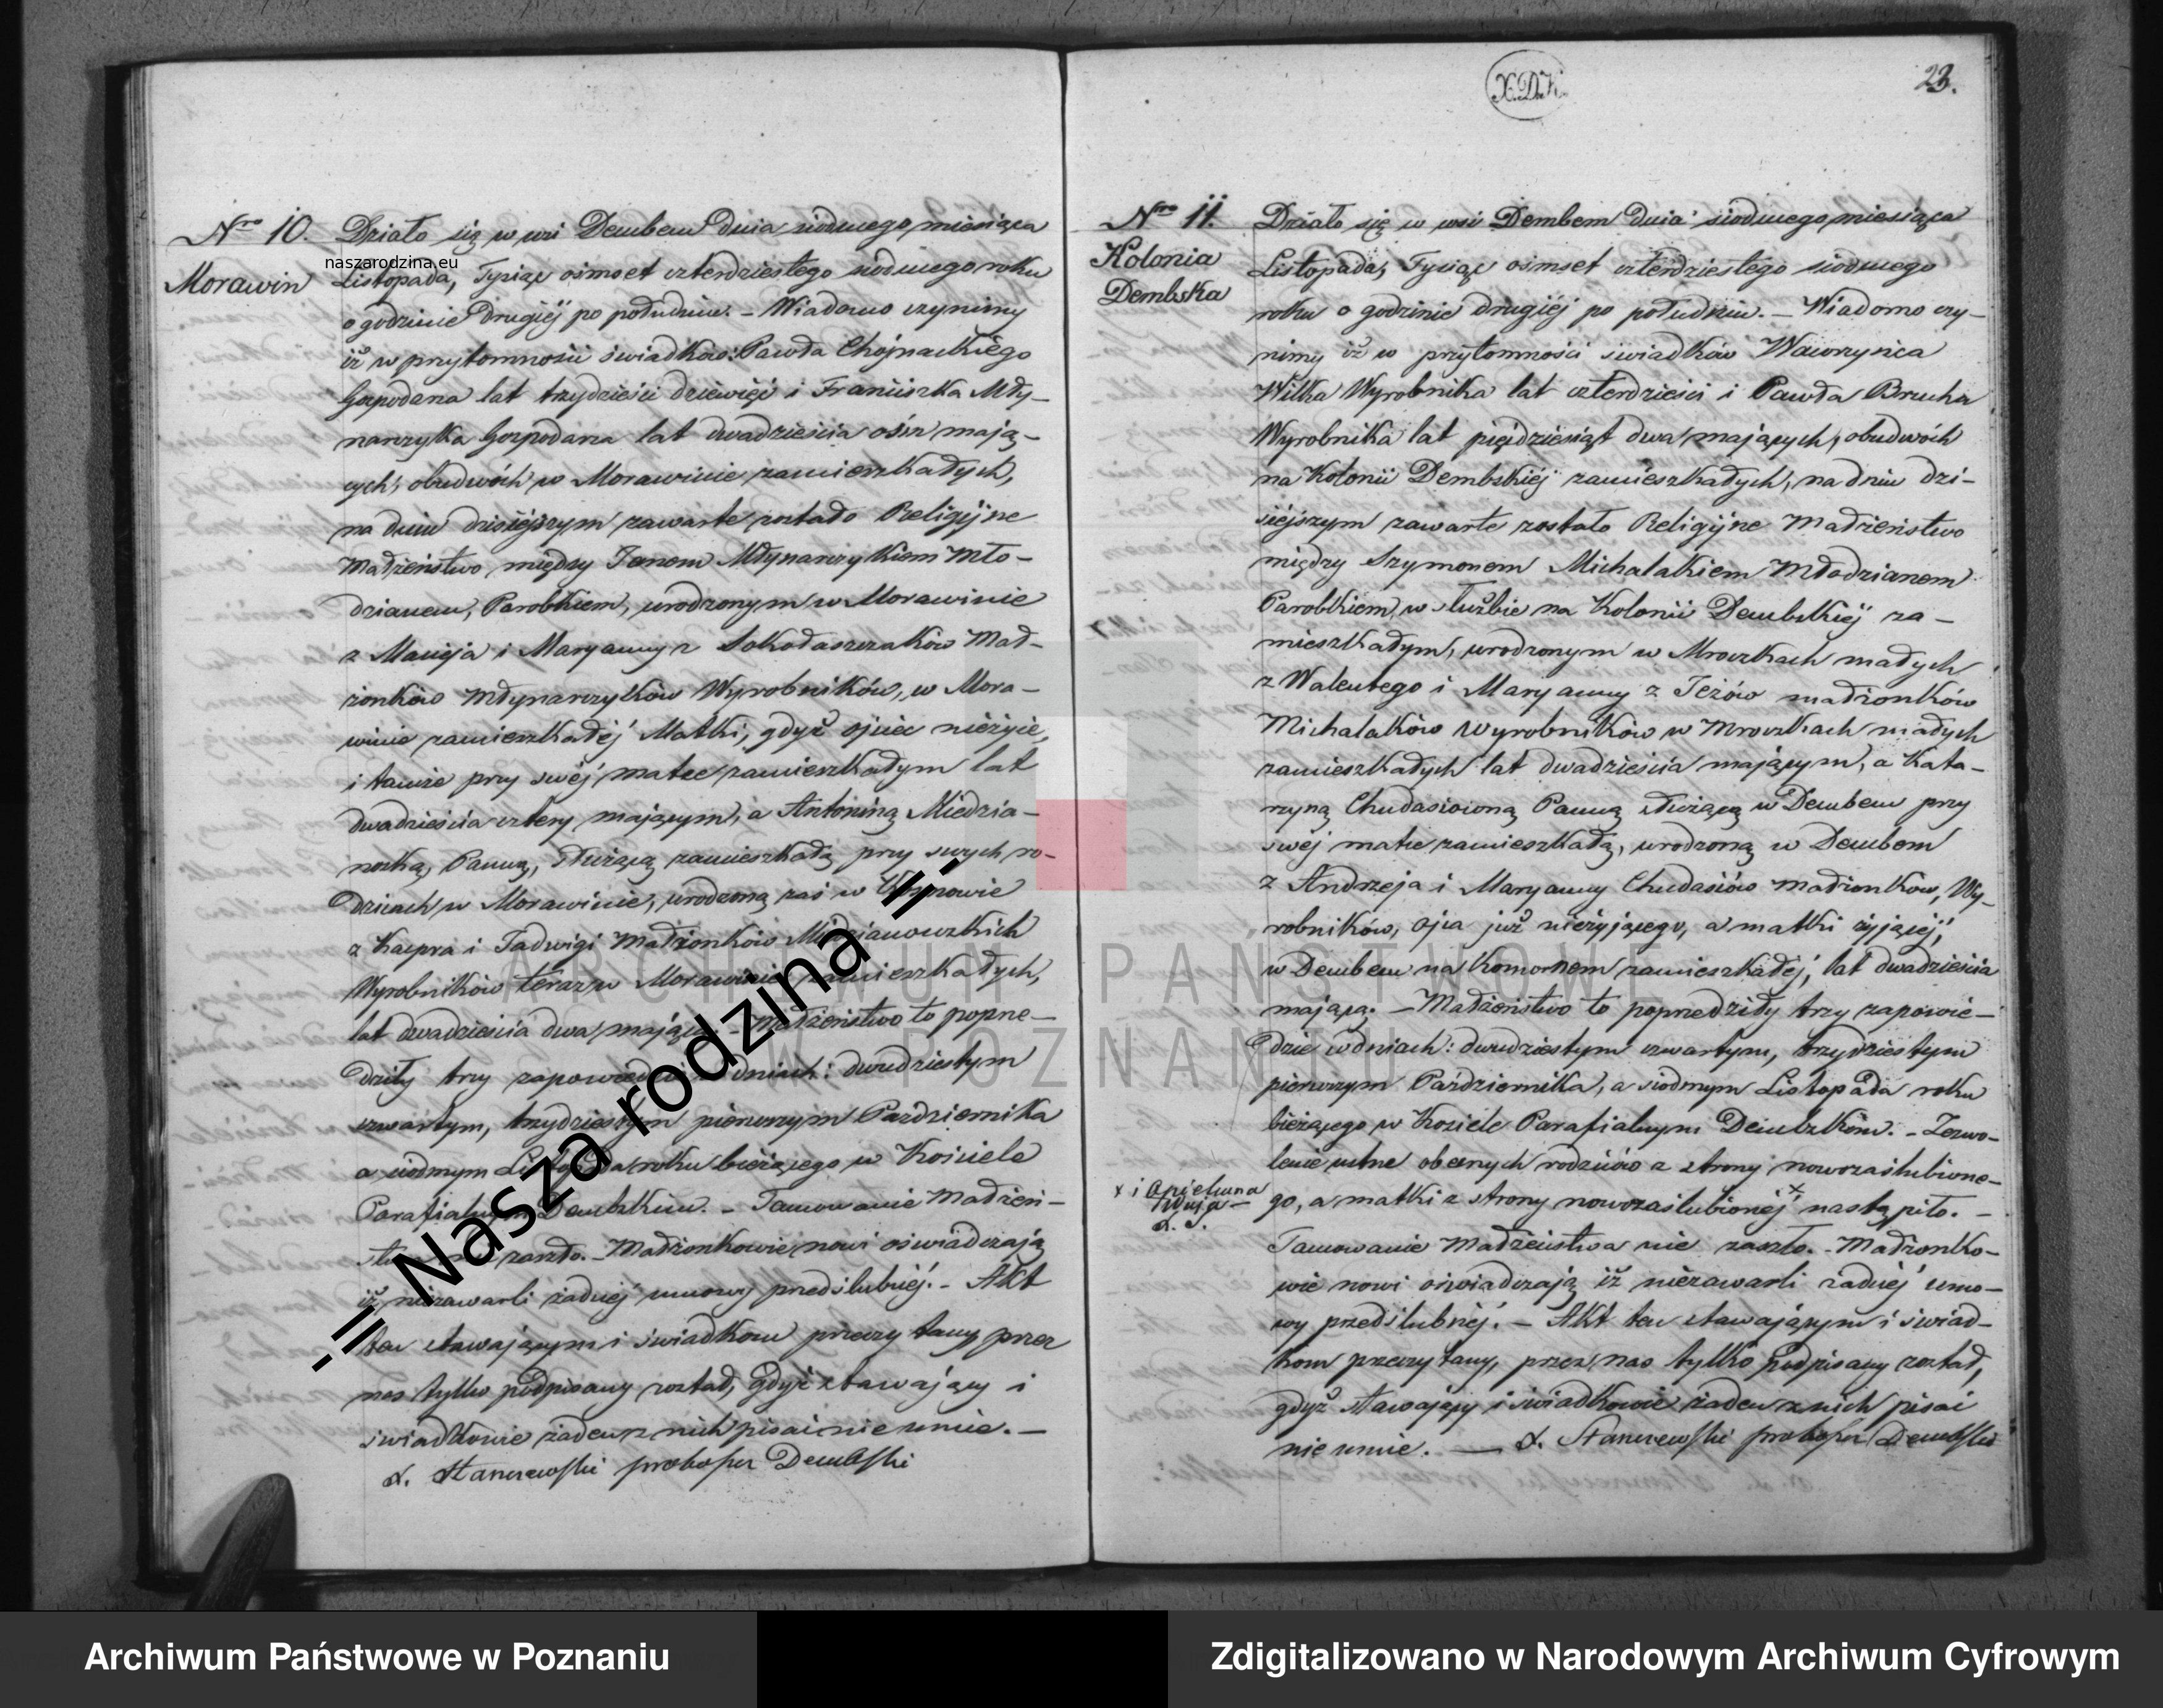 X.D.K.
23.
Nro 10.
Morawin
Działo się w wsi Dembem Dnia siódmego miesiąca
naszarodzina.eu
Listopada, Tysiąc ośmset czterdziestego siódmego roku
o godzinie drugiéj po południu. – Wiadomo czynimy
iż w przytomności świadków: Pawła Chojnackiego
Gospodarza lat trzydzieści dziewięć i Franciszka Mły–
narczyka Gospodarza lat dwadzieścia ośm mają–
cych, obudwóch w Morawinie zamieszkałych,
na dniu dzisiéjszym zawarte zostało Religijne
Małżeństwo między Janem Młynarczykiem Mło–
dzianem, Parobkiem, urodzonym w Morawinie
z Macieja i Maryanny z Sokołaszczaków Mał–
żonków Młynarczyków Wyrobników, w Mora–
winie zamieszkałéj Matki, gdyż ojciec nieżyje,
i tamże przy swéj matce zamieszkałym lat
dwadzieścia cztery mającym, a Antoniną Miedzia–
noską, Panną, służącą zamieszkałą przy swych ro–
dzicach w Morawinie, urodzoną zaś w
z Kacpra i Jadwigi Małżonków Miedzianowskich
Wyrobników teraz w Morawinie zamieszkałych,
lat dwadzieścia dwa mającą. – Małżeństwo to poprze–
dziły trzy zapowiedzi w dniach: dwudziestym
czwartym, trzydziestym pierwszym Października
a siódmym Listopada roku bieżącego w Kościele
Parafialnym Dembskim. – Tamowanie Małżeń–
stwa nie zaszło. – Małżonkowie nowi oświadczają
iż niezawarli żadnéj umowy przedślubnéj. – Akt
ten stawającym i świadkom przeczytany przez
nas tylko podpisany został, gdyż stawający i
świadkowie żaden z nich pisać nie umie. –
X. Stanczewski proboszcz Dembski
Nro 11.
Kolonia
Dembska
Działo się w wsi Dembem Dnia siódmego miesiąca
Listopada, Tysiąc ośmset czterdziestego siódmego
roku o godzinie drugiéj po południu. – Wiadomo czy–
nimy iż w przytomności świadków Wawrzyńca
Wilka Wyrobnika lat czterdzieści i Pawła Brzucha
Wyrobnika lat pięćdziesiąt dwa mających, obudwóch
na Kolonii Dembskiéj zamieszkałych, na dniu dzi–
siéjszym zawarte zostało Religijne Małżeństwo
między Szymonem Michalakiem Młodzianem
Parobkiem, w służbie na Kolonii Dembskiéj za–
mieszkałym, urodzonym w Mroczkach małych
z Walentego i Maryanny z Jeżów małżonków
Michalaków Wyrobników w Mroczkach małych
zamieszkałych lat dwadzieścia mającym, a Kata–
rzyną Chudasiowną Panną służącą w Dembem przy
swéj matce zamieszkałą, urodzoną w Dembem
z Andrzeja i Maryanny Chudasiów małżonków, Wy–
robników, ojca już nieżyjącego, a matki żyjącéj,
w Dembem na Komornem zamieszkałéj, lat dwadzieścia
mającą. – Małżeństwo to poprzedziły trzy zapowie–
dzie w dniach: dwudziestym czwartym, trzydziestym
pierwszym Października, a siódmym Listopada roku
bieżącego w Kościele Parafialnym Dembskim. – Zezwo–
lenie ustne obecnych rodziców z strony nowozaślubione–
x i Opiekuna
Wuja –
X. S.
go, a matki z strony nowozaślubionéj x nastąpiło. –
Tamowanie Małżeństwa nie zaszło. – Małżonko–
wie nowi oświadczają iż niezawarli żadnéj umo–
wy przedślubnéj. – Akt ten stawającym i świad–
kom przeczytany, przez nas tylko podpisany został,
gdyż stawający i świadkowie żaden z nich pisać
nie umie. — X. Stanczewski proboszcz Dembski
ARCHIWUM PAŃSTWOWE
W POZNANIU
-=| Nasza rodzina |=-
Archiwum Państwowe w Poznaniu
Zdigitalizowano w Narodowym Archiwum Cyfrowym